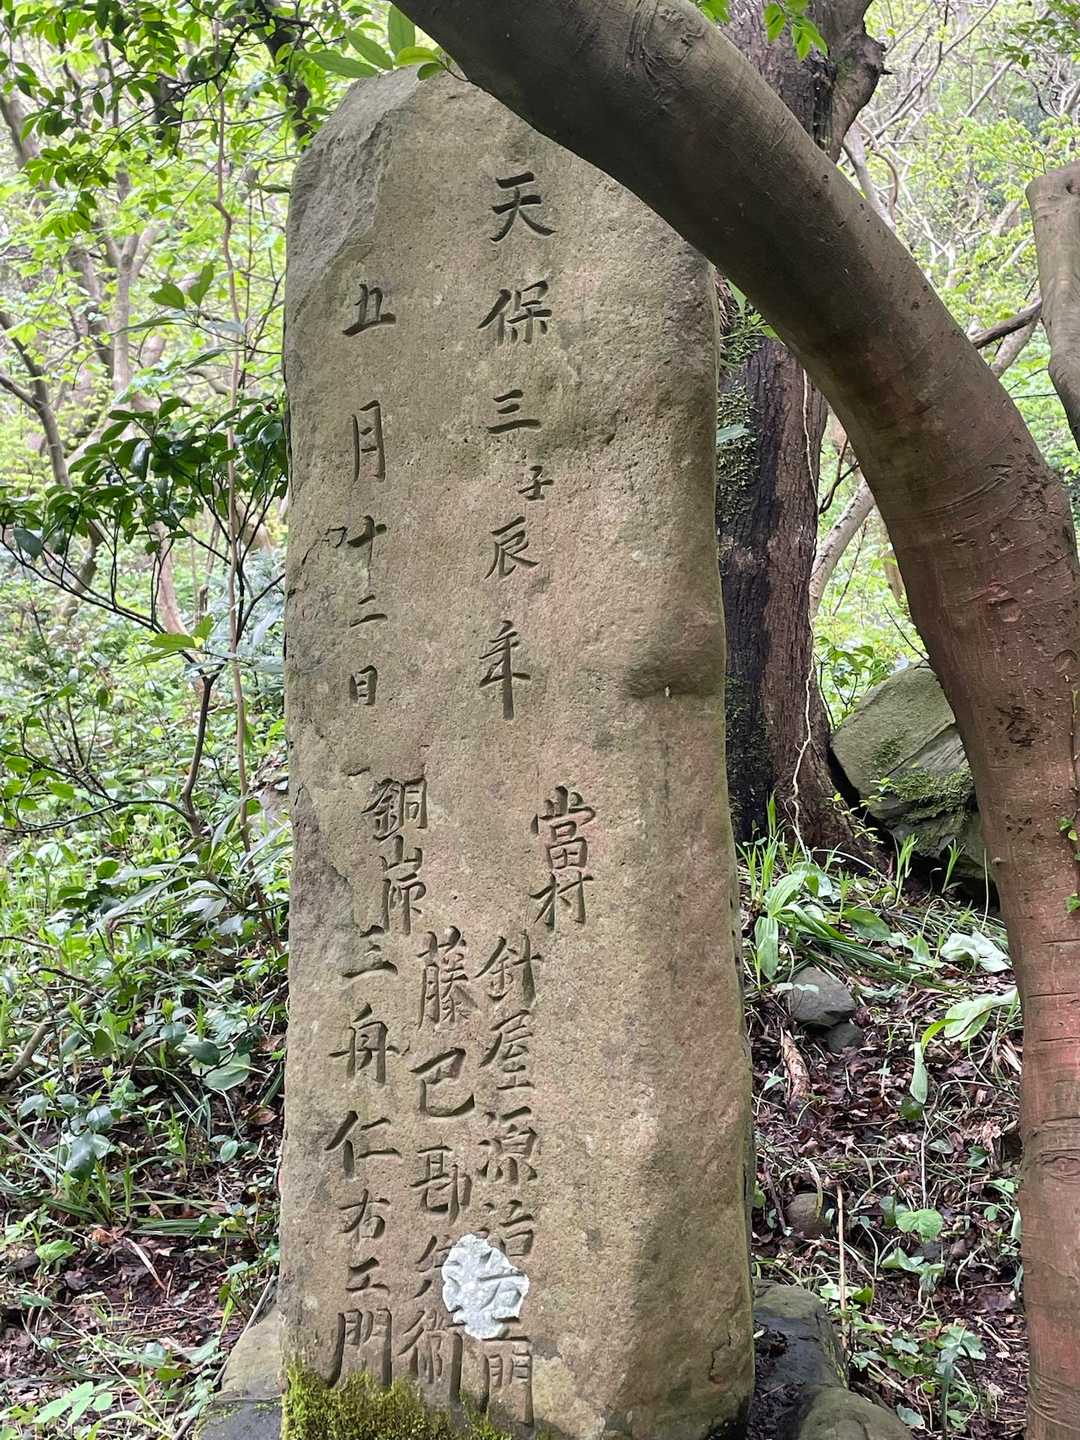 天保三壬辰年
五月十二日
當村 針屋源治右エ門
藤巴勘兵衛
銅山師 三舟仁右エ門